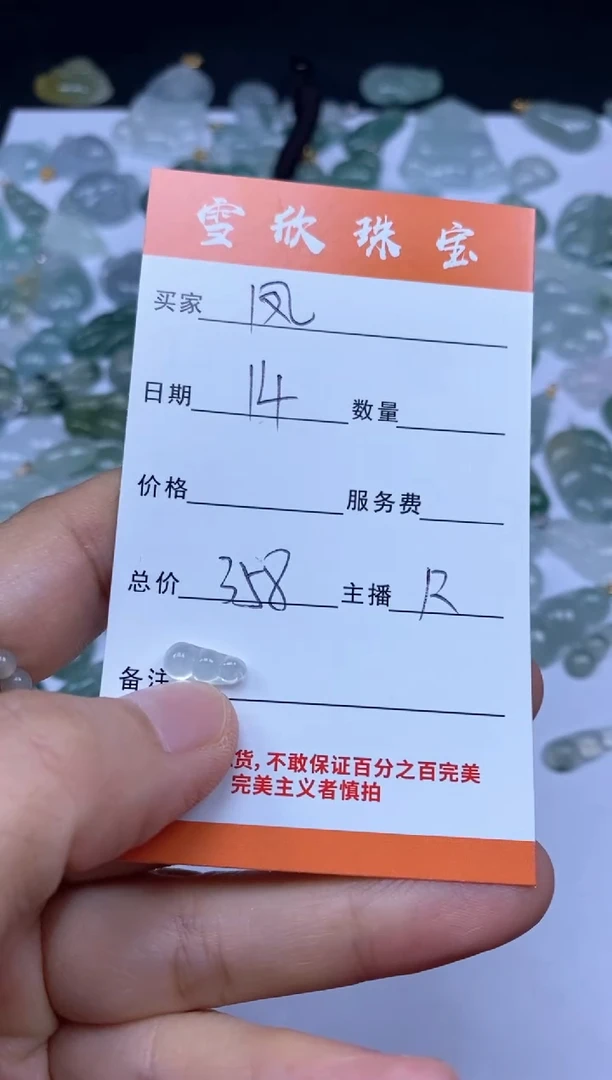 雪欣珠宝
买家 风
日期 14 数量
价格 服务费
总价 358 主播 R
备注
货,不敢保证百分之百完美
完美主义者慎拍